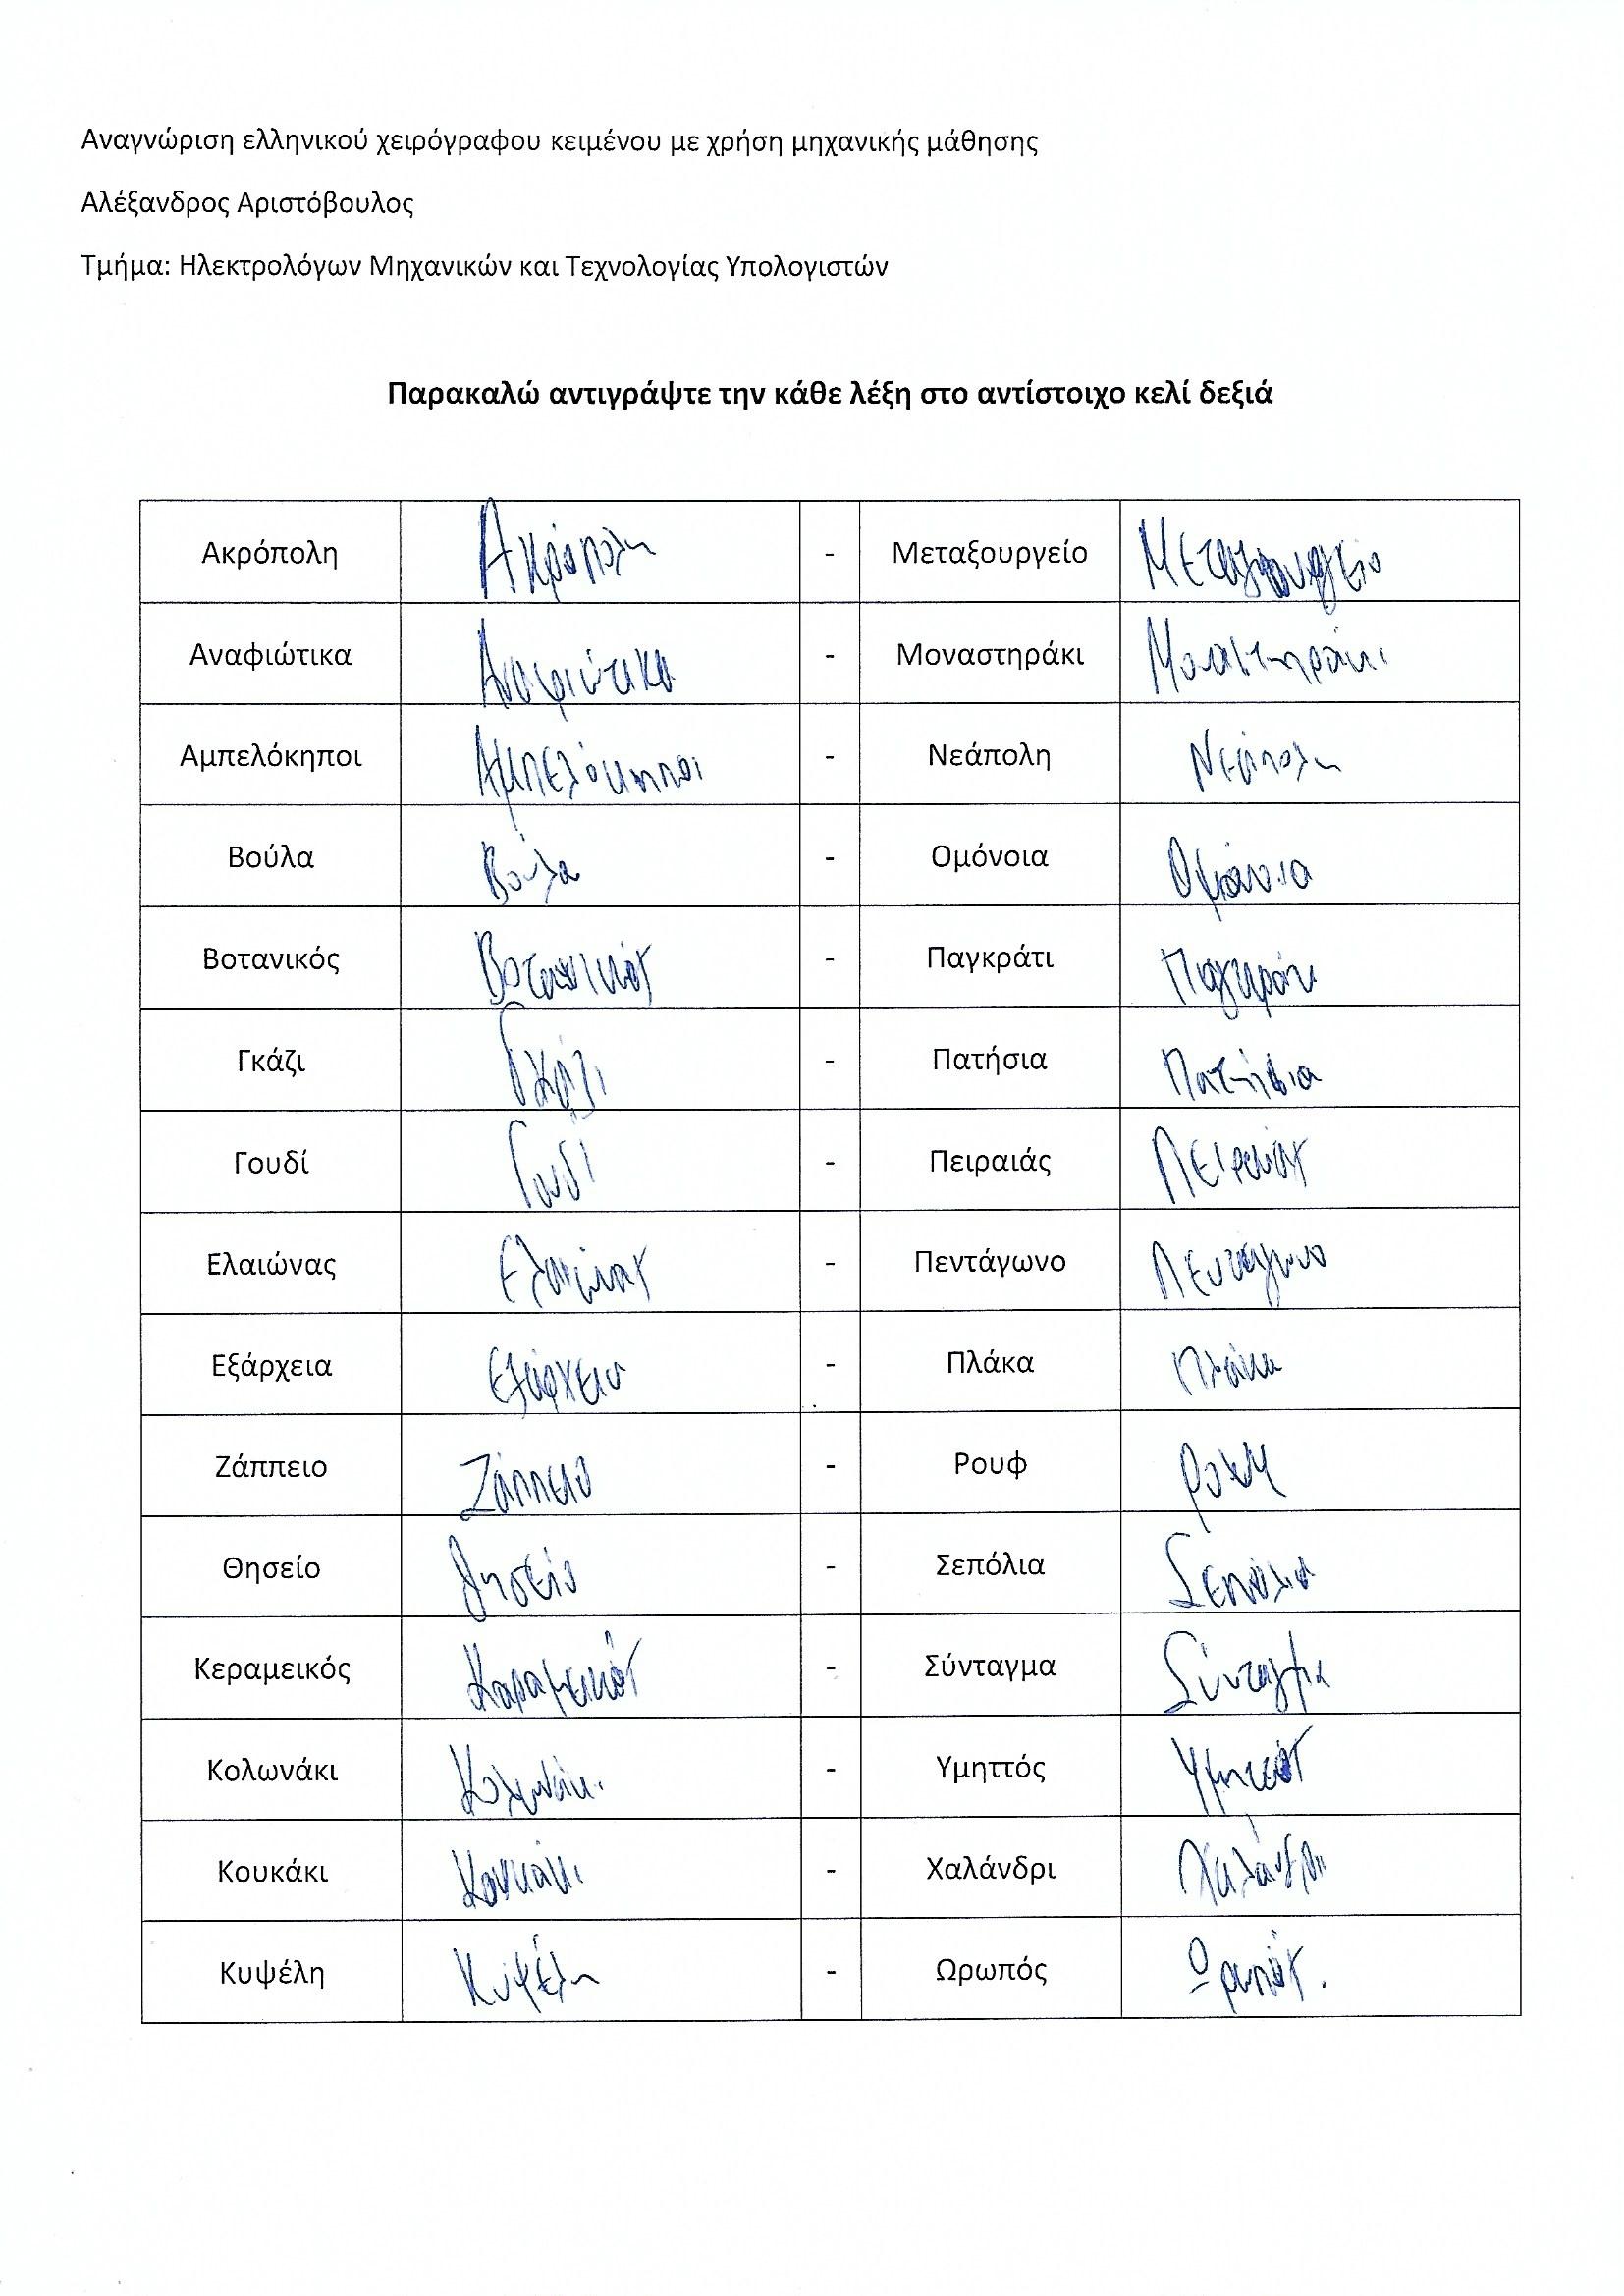 Αναγνώριση ελληνικού χειρόγραφου κειμένου με χρήση μηχανικής μάθησης
Αλέξανδρος Αριστόβουλος
Τμήμα: Ηλεκτρολόγων Μηχανικών και Τεχνολογίας Υπολογιστών
Παρακαλώ αντιγράψτε την κάθε λέξη στο αντίστοιχο κελί δεξιά
Ακρόπολη Ακρόπολη - Μεταξουργείο Μεταξουργείο
Αναφιώτικα Αναφιώτικα - Μοναστηράκι Μοναστηράκι
Αμπελόκηποι Αμπελόκηποι - Νεάπολη Νεάπολη
Βούλα Βούλα - Ομόνοια Ομόνοια
Βοτανικός Βοτανικός - Παγκράτι Παγκράτι
Γκάζι Γκάζι - Πατήσια Πατήσια
Γουδί Γουδί - Πειραιάς Πειραιάς
Ελαιώνας Ελαιώνας - Πεντάγωνο Πεντάγωνο
Εξάρχεια Εξάρχεια - Πλάκα Πλάκα
Ζάππειο Ζάππειο - Ρουφ Ρουφ
Θησείο Θησείο - Σεπόλια Σεπόλια
Κεραμεικός Καραμεικός - Σύνταγμα Σύνταγμα
Κολωνάκι Κολωνάκι - Υμηττός Υμηττός
Κουκάκι Κουκάκι - Χαλάνδρι Χαλάνδρι
Κυψέλη Κυψέλη - Ωρωπός Ωρωπός.